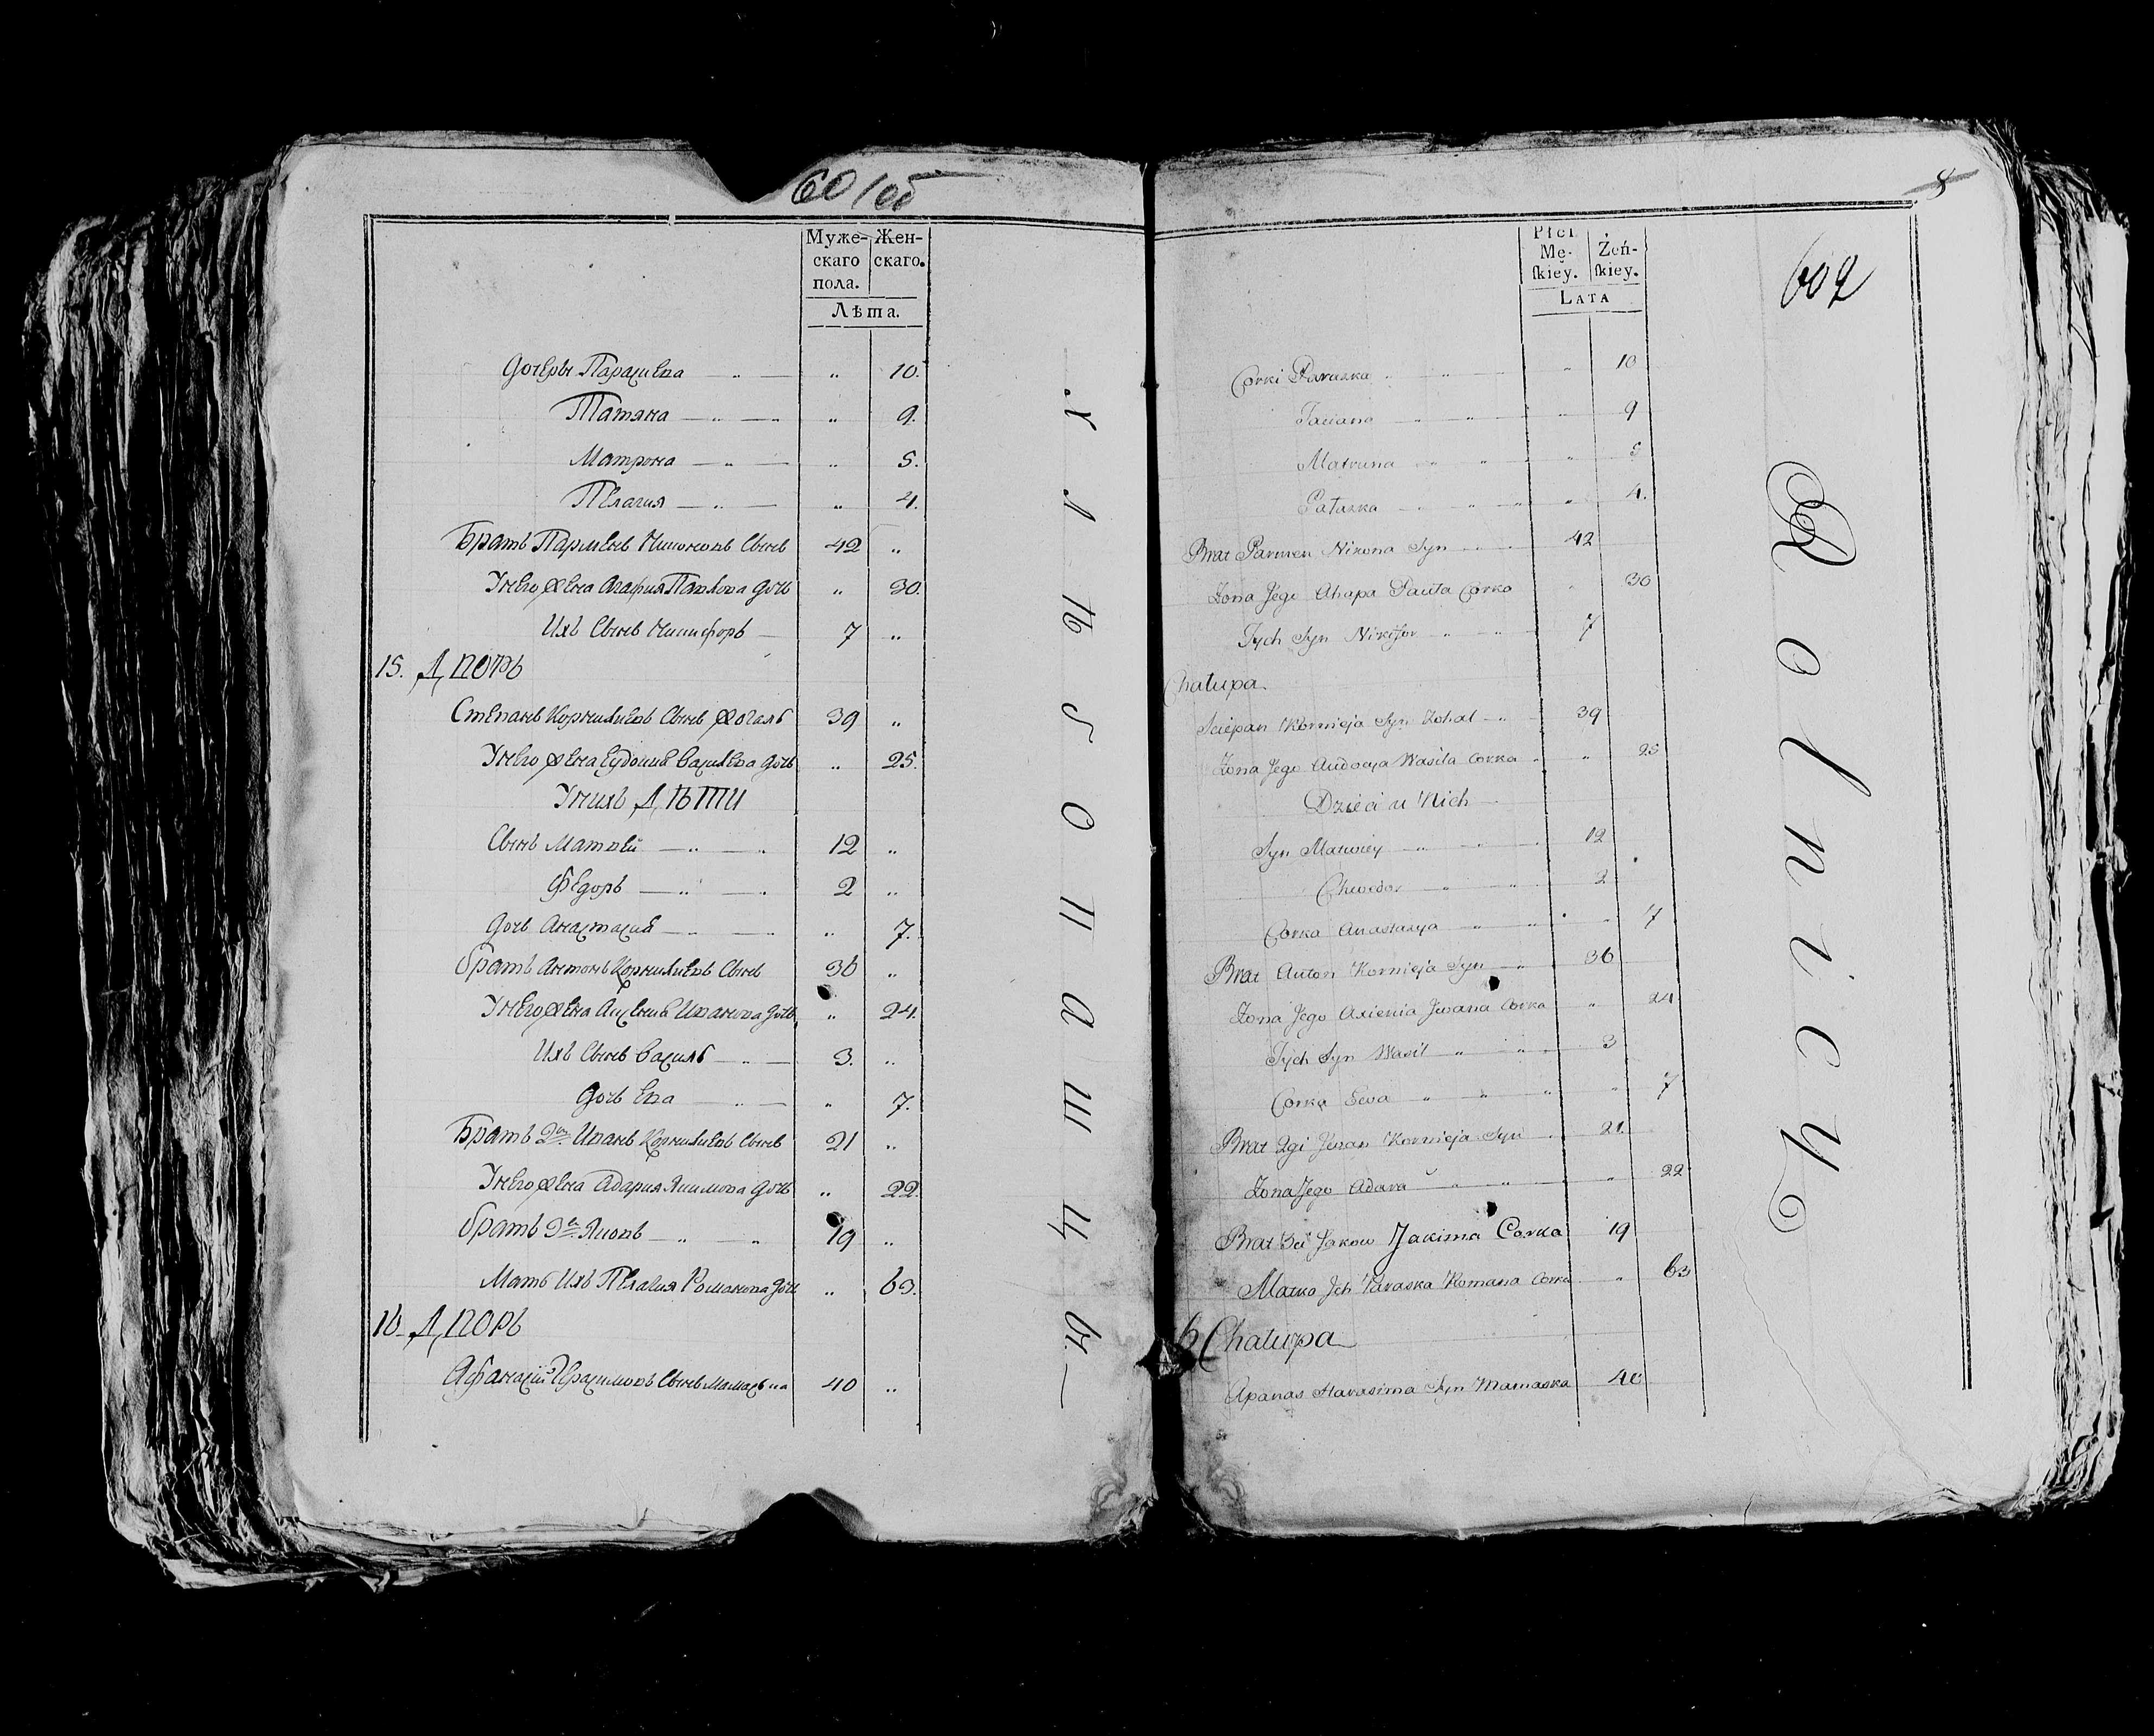 60/об
Муже-скаго пола. Жен-скаго.
Лѣта.
Дочеры Парасиева " 10.
Татяна " 9.
Матрона " 5.
Пелагия " 4.
Братъ Парменъ Никоновъ Сынъ 42 "
Унего жена Агафия Павлова дочь " 30.
Ихъ Сынъ Никифоръ 7 "
15. Дворъ
Степанъ Корнилиевъ Сынъ Жогаль 39 "
Унего жена Еудокия Василева дочь " 25.
Унихъ Дѣти
Сынъ Матвей 12 "
Федоръ 2 "
Дочь Анастасия " 7.
Братъ Антонъ Корнилиевъ Сынъ 36 "
Унего жена Аксения Иванова дочь " 24.
Ихъ Сынъ Василь 3. "
Дочь Ева " 7.
Братъ 2й Иванъ Корнилиевъ Сынъ 21 "
Унего жена Адария Якимова дочь " 22.
Братъ 3й Яковъ 19 "
Мать Ихъ Пелагия Романова дочь " 63.
16. Дворъ
Афанасий Герасимовъ Сынъ Мамаська 40 "
Хлѣбопашцы.
8
602
Płci Mę-skiey. Żeń-skiey.
LATA
Corki Paraska " 10
Taciana " 9
Matruna " 5
Pałaska " 4.
Brat Parmen Nikona Syn 42
Zona Jego Ahapa Pauła Corka " 30
Tych Syn Nikifor 7
Chałupa
Sciepan Kornieja Syn Zohal 39
Zona Jego Audocya Wasila Corka " 25
Dzieci u Nich
Syn Matwiey 12
Chwedor 2
Corka Anastasya " 7
Brat Anton Kornieja Syn 36
Zona Jego Axienia Jwana Corka " 24
Tych Syn Wasil 3
Corka Ewa " 7
Brat 2gi Jwan Kornieja Syn 21.
Zona Jego Adara " 22
Brat 3ci Jakow Jakima Corka 19
Matka Jch Paraska Romana Corka " 63
6 Chałupa
Apanas Harasima Syn Mamaska 40
Rolnicy